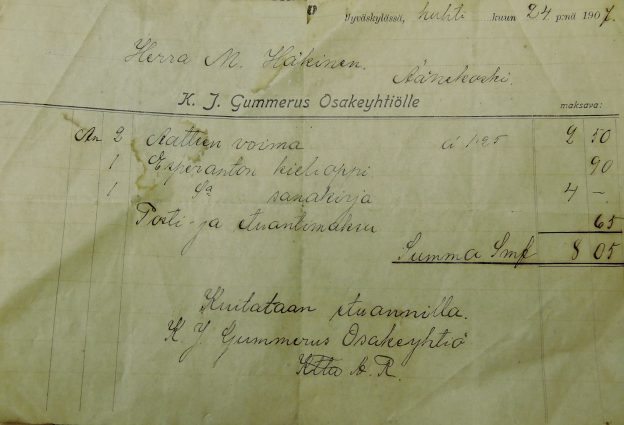 Jyväskylässä, huhti kuun 24 p:nä 1907.
Herra M. Häkinen.
Äänekoski.
K. J. Gummerus Osakeyhtiölle maksava:
An 2 Aattien voima à 1.25 2 50
1 Esperanton kielioppi 90
1 sanakirja 4 -
Posti- ja 65
Summa Smk 8 05
Kuitataan
K J. Gummerus Osakeyhtiö
A. R.